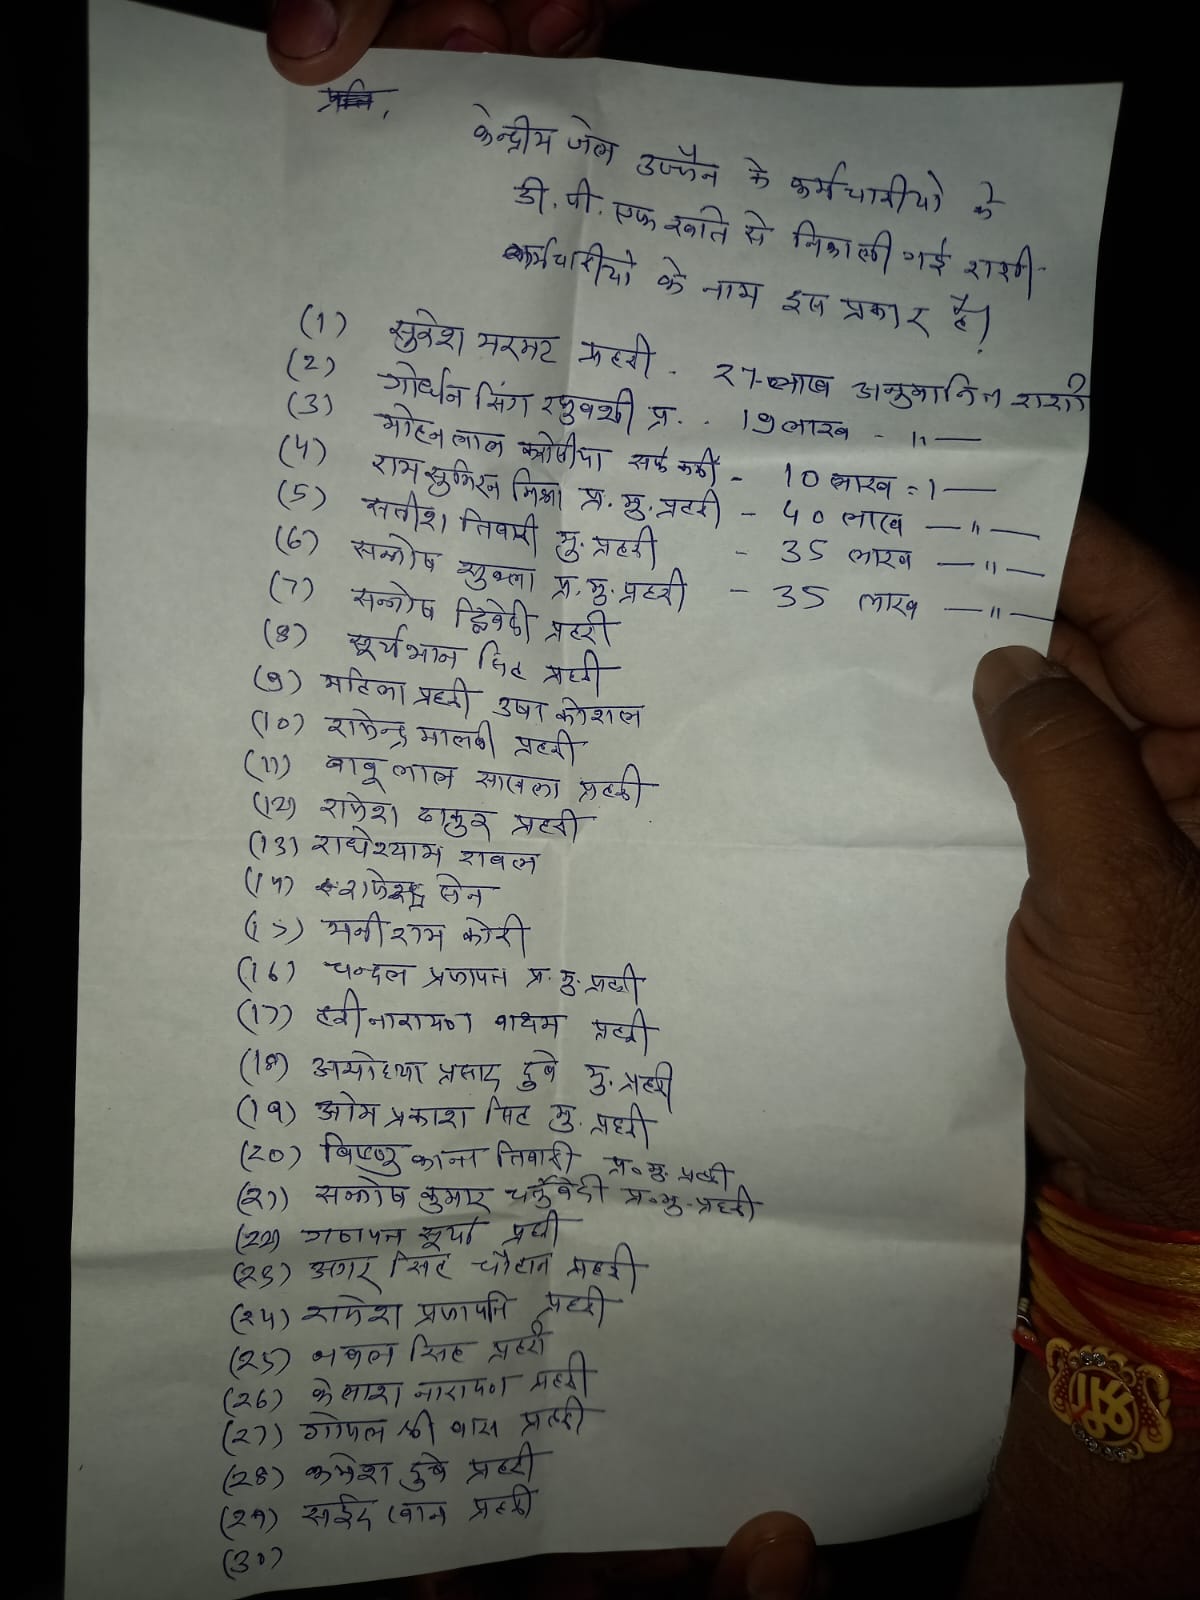 प्रति,
केन्द्रीय जेल उज्जैन के कर्मचारीयो के
डी. पी. एफ खाते से निकाली गई राशी
कर्मचारीयो के नाम इस प्रकार है।
(1) सुरेश मरमट प्रहरी - 27 लाख अनुमानित राशी
(2) गोर्धन सिंग रघुवंशी प्र. - 19 लाख - 11 —
(3) मोहन लाल - 10 लाख = 1 —
(4) राम सुमिरन मिश्रा प्र. मु. प्रहरी - 40 लाख — " —
(5) सतीश तिवारी मु. प्रहरी - 35 लाख — " —
(6) सन्तोष सुक्ला प्र. मु. प्रहरी - 35 लाख — " —
(7) सन्तोष द्विवेदी प्रहरी
(8) सूर्यभान सिह प्रहरी
(9) महिला प्रहरी उषा कोशल
(10) राजेन्द्र मालवी प्रहरी
(11) बाबू लाल सावला प्रहरी
(12) राजेश ठाकुर प्रहरी
(13) राधेश्याम रावल
(14) सेन
(15) मनीराम कोरी
(16) चन्दन प्रजापत प्र. मु. प्रहरी
(17) हरी नारायण बाथम प्रहरी
(18) अयोध्या प्रसाद दुबे मु. प्रहरी
(19) ओम प्रकाश सिह मु. प्रहरी
(20) विष्णु कान्त तिवारी प्र. मु. प्रहरी
(21) सन्तोष कुमार चर्तुवेदी प्र. मु. प्रहरी
(22) गणपत सूर्या प्रहरी
(23) अमर सिह चौहान प्रहरी
(24) राजेश प्रजापति प्रहरी
(25) सिह प्रहरी
(26) केलाश नारायण प्रहरी
(27) गोपाल श्री वास प्रहरी
(28) कमेश दुबे प्रहरी
(29) सईद खान प्रहरी
(30)